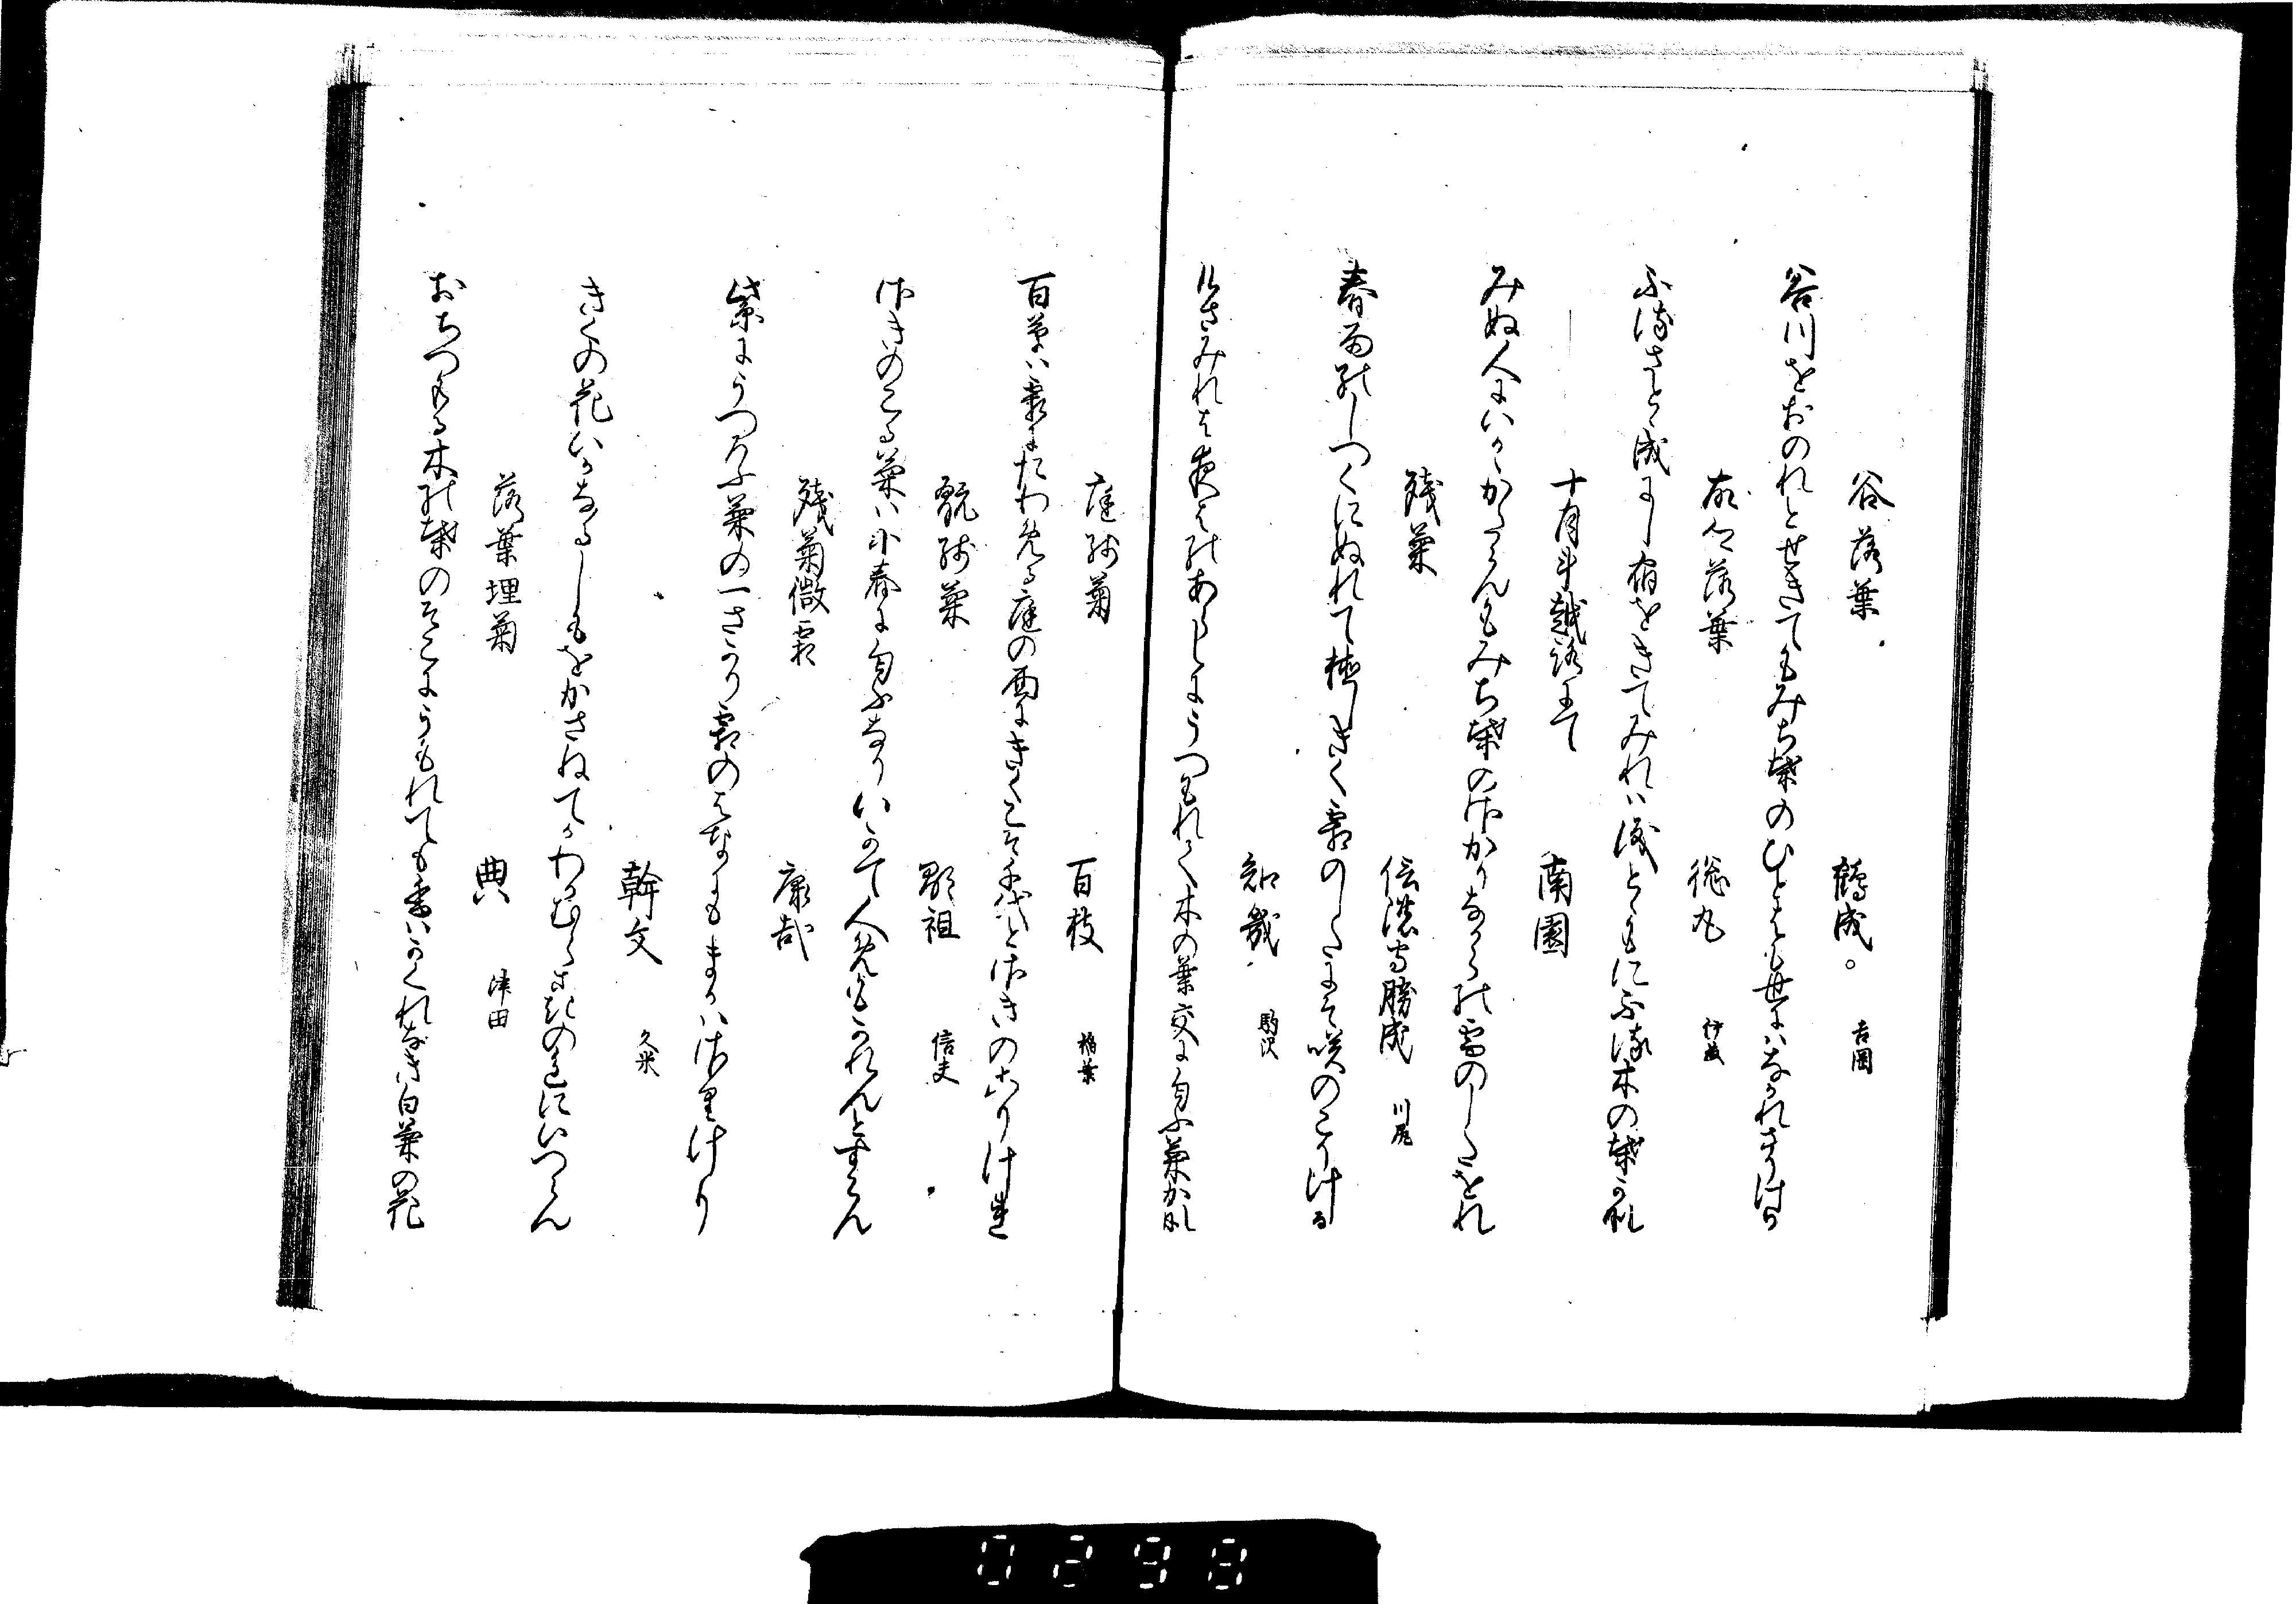 谷落葉
鶴成 吉岡
谷川をおのれとせきてもみち葉のひとよも世にはなかれさりけり
故郷落葉
穐丸 伊藤
ふるさとゝ成にし宿をきてみれは淺とゝもにふる木の葉かな
十月斗越路にて
南園
みぬ人にいかゝかたらんもみち葉のはかりなからの雪のしたをれ
残菊
信濃守勝成 川尻
春雨のしつくにぬれて植しきく霜のしたにそ咲のこりける
知幾 駒沢
けさみれは夜はのあらしにうつもれて木の葉交に匂ふ菊かな
庭残菊
百枝 稲葉
百草は霜にたわめる庭の面にきくこそ千代とさきのこりけれ
翫残菊
影祖 信夫
さきのこる菊は小春に匂ふなりいかて人めもかれんとすらん
残菊儆霜
康哉
紫にうつろふ菊の一さかり霜のはなにもまかはさりけり
幹文 久米
きくの花いかなるしもをかさねてかわかむらさきの色にいつらん
落葉埋菊
典 津田
おちつもる木の葉のそこにうつもれても香はかくれなき白菊の花
0298